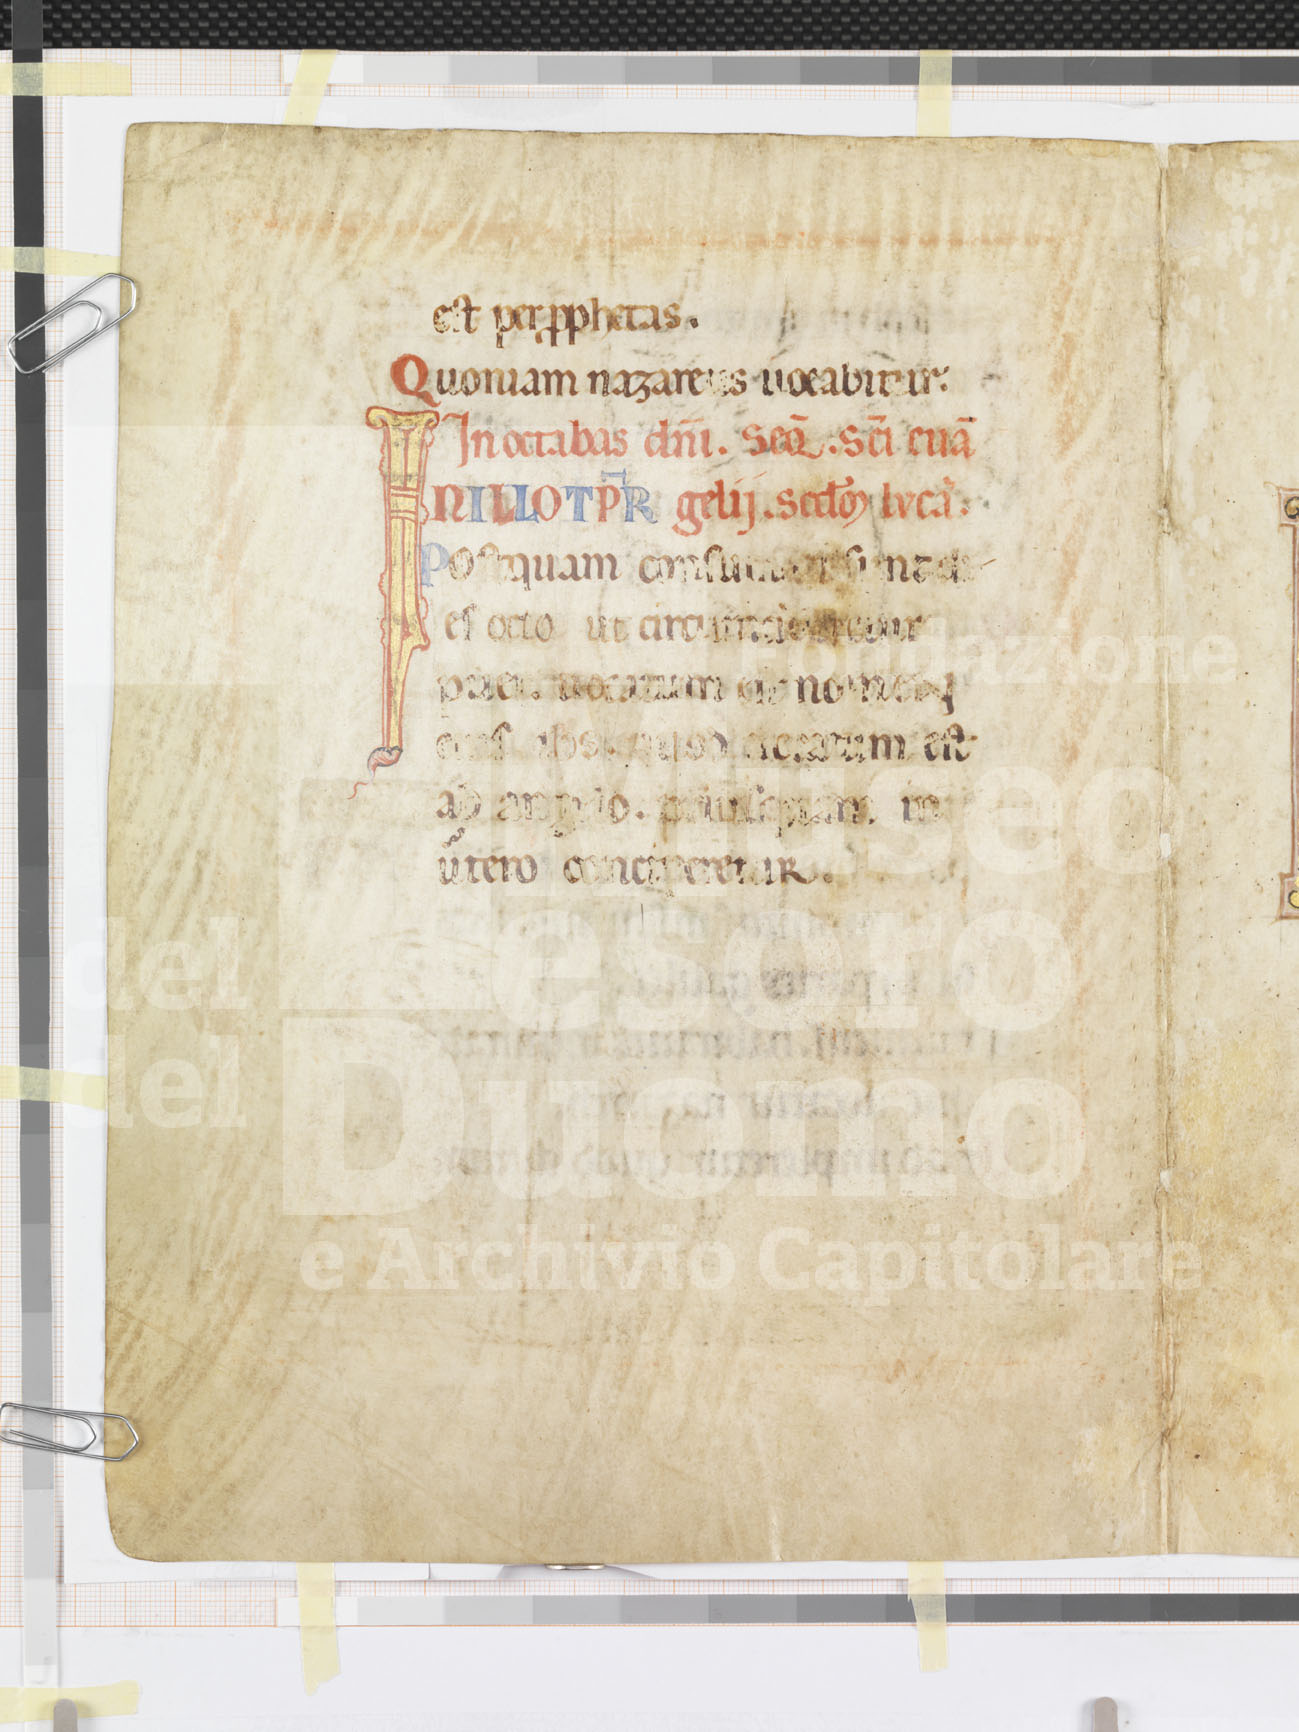 est per pphetas.
Quoniam nazareus uocabitur:
In octabas dñi. Seq̃. Sc̃i euã
IN ILLO TP̄R gelij. secdọ lucã.
Postquam consummati sunt di
es octo ut circuncideretur
puer. uocatum est nomen
eius ihs. quod uocatum est
ad angelo. priusquam in
utero conciperetur.
Fondazione
Museo
del Tesoro
del Duomo
e Archivio Capitolare